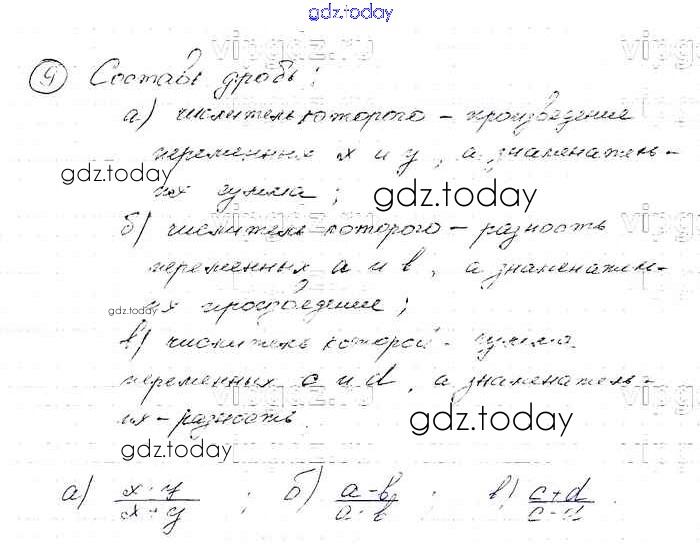 gdz.today
vipgdz.ru
9 Составь дробь:
а) числитель которого – произведение
переменных x и y, а знаменатель-
их сумма;
gdz.today
gdz.today
б) числитель которого – разность
переменных a и b, а знаменатель-
их произведение;
gdz.today
в) числитель которой – сумма
переменных c и d, а знаменатель-
их – разность.
gdz.today
gdz.today
а) x·y / x+y ; б) a-b / a·b ; в) c+d / c-d .